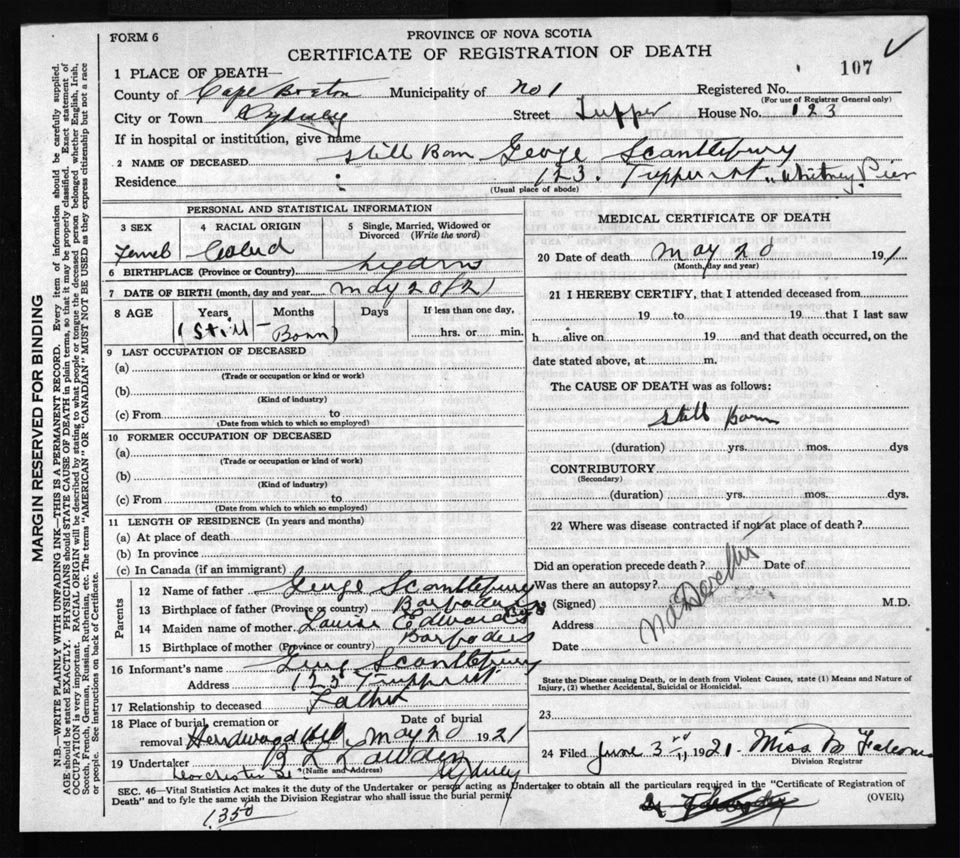 FORM 6
PROVINCE OF NOVA SCOTIA
CERTIFICATE OF REGISTRATION OF DEATH
107
1 PLACE OF DEATH—
County of Cape Breton Municipality of No 1 Registered No.
(For use of Registrar General only)
City or Town Sydney Street Tupper House No. 123
If in hospital or institution, give name
2 NAME OF DECEASED Still Born George Scantlebury
Residence 123 Tupper st Whitney Pier
(Usual place of abode)
PERSONAL AND STATISTICAL INFORMATION
3 SEX
4 RACIAL ORIGIN
5 Single, Married, Widowed or Divorced (Write the word)
6 BIRTHPLACE (Province or Country)
7 DATE OF BIRTH (month, day and year) May 20/21
8 AGE Years Months Days If less than one day,
(Still-Born) hrs. or min.
9 LAST OCCUPATION OF DECEASED
(a)
(Trade or occupation or kind or work)
(b)
(Kind of industry)
(c) From to
(Date from which to which so employed)
10 FORMER OCCUPATION OF DECEASED
(a)
(Trade or occupation or kind or work)
(b)
(Kind of industry)
(c) From to
(Date from which to which so employed)
11 LENGTH OF RESIDENCE (In years and months)
(a) At place of death
(b) In province
(c) In Canada (if an immigrant)
Parents
12 Name of father George Scantlebury
13 Birthplace of father (Province or country) Barbadoes
14 Maiden name of mother Louise Edwards
15 Birthplace of mother (Province or country) Barbadoes
16 Informant's name Scantlebury
Address 123 Tupper st
17 Relationship to deceased Father
18 Place of burial, cremation or removal Date of burial
Hardwood Hill May 20 1921
19 Undertaker
(Name and Address)
Dorchester St Sydney
MEDICAL CERTIFICATE OF DEATH
20 Date of death May 20 191
(Month, day and year)
21 I HEREBY CERTIFY, that I attended deceased from
19 to 19 that I last saw
h alive on 19 and that death occurred, on the
date stated above, at m.
The CAUSE OF DEATH was as follows:
Still Born
(duration) yrs. mos. dys
CONTRIBUTORY
(Secondary)
(duration) yrs. mos. dys.
22 Where was disease contracted if not at place of death?
Did an operation precede death? Date of
Was there an autopsy?
(Signed) M.D.
Address
Date
No Doctor
State the Disease causing Death, or in death from Violent Causes, state (1) Means and Nature of Injury, (2) whether Accidental, Suicidal or Homicidal.
23
24 Filed June 3rd 1921. Miss B
Division Registrar
SEC. 46—Vital Statistics Act makes it the duty of the Undertaker or person acting as Undertaker to obtain all the particulars required in the "Certificate of Registration of
Death" and to fyle the same with the Division Registrar who shall issue the burial permit. (OVER)
1350
MARGIN RESERVED FOR BINDING
N.B.—WRITE PLAINLY WITH UNFADING INK—THIS IS A PERMANENT RECORD. Every item of information should be carefully supplied.
AGE should be stated EXACTLY. PHYSICIANS should STATE CAUSE OF DEATH in plain terms, so that it may be properly classified. Exact statement of
OCCUPATION is very important. RACIAL ORIGIN will be described by stating to what people or tongue the deceased person belonged whether English, Irish,
Scotch, French, German, Russian, Ruthenian, etc. The terms "AMERICAN" OR "CANADIAN" MUST NOT BE USED as they express citizenship but not a race
or people. See instructions on back of Certificate.